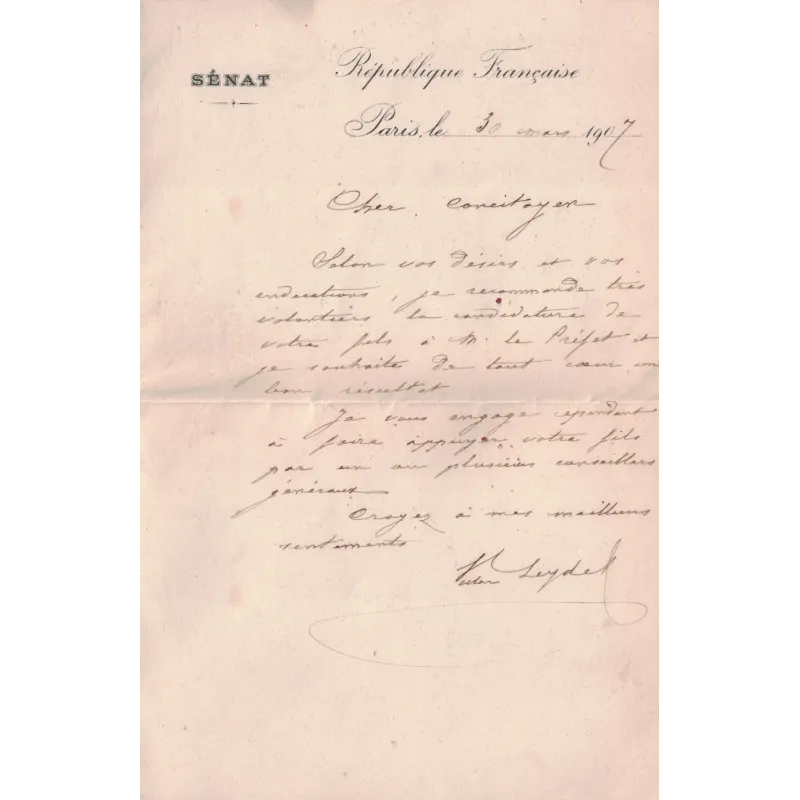 SÉNAT
République Française
Paris, le 30 mars 1907
Cher concitoyen
Selon vos désirs et vos
indications, je recommande très
volontiers la candidature de
votre fils à M. le Préfet et
je souhaite de tout cœur un
bon résultat
Je vous engage cependant
à faire appuyer votre fils
par un ou plusieurs conseillers
généraux
Croyez à mes meilleurs
sentiments
Victor Leydet